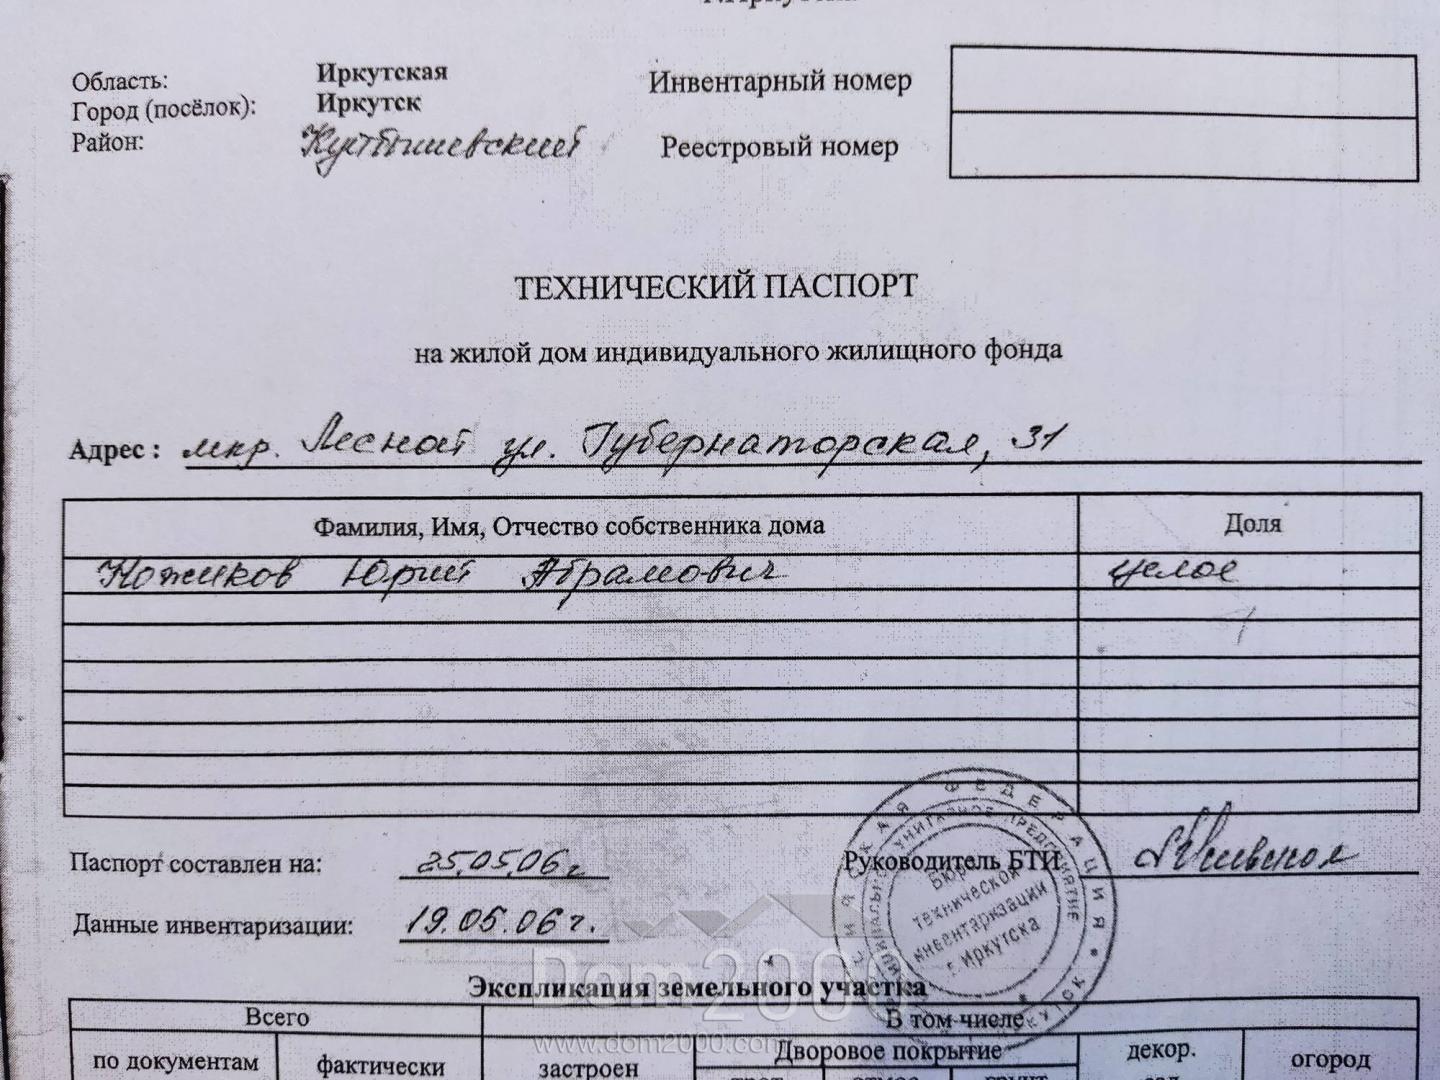 Область: Иркутская Инвентарный номер
Город (посёлок): Иркутск
Район: Куйбышевский Реестровый номер
ТЕХНИЧЕСКИЙ ПАСПОРТ
на жилой дом индивидуального жилищного фонда
Адрес : мкр. Лесной ул. Губернаторская, 31
Фамилия, Имя, Отчество собственника дома Доля
Ножиков Юрий Абрамович целое
Паспорт составлен на: 25.05.06г Руководитель БТИ
Данные инвентаризации: 19.05.06г.
РОССИЙСКАЯ ФЕДЕРАЦИЯ * Г. ИРКУТСК
МУНИЦИПАЛЬНОЕ УНИТАРНОЕ ПРЕДПРИЯТИЕ
Бюро
технической
инвентаризации
г. Иркутска
Dom2000
www.dom2000.com
Экспликация земельного участка
Всего В том числе
по документам фактически застроен Дворовое покрытие декор. огород